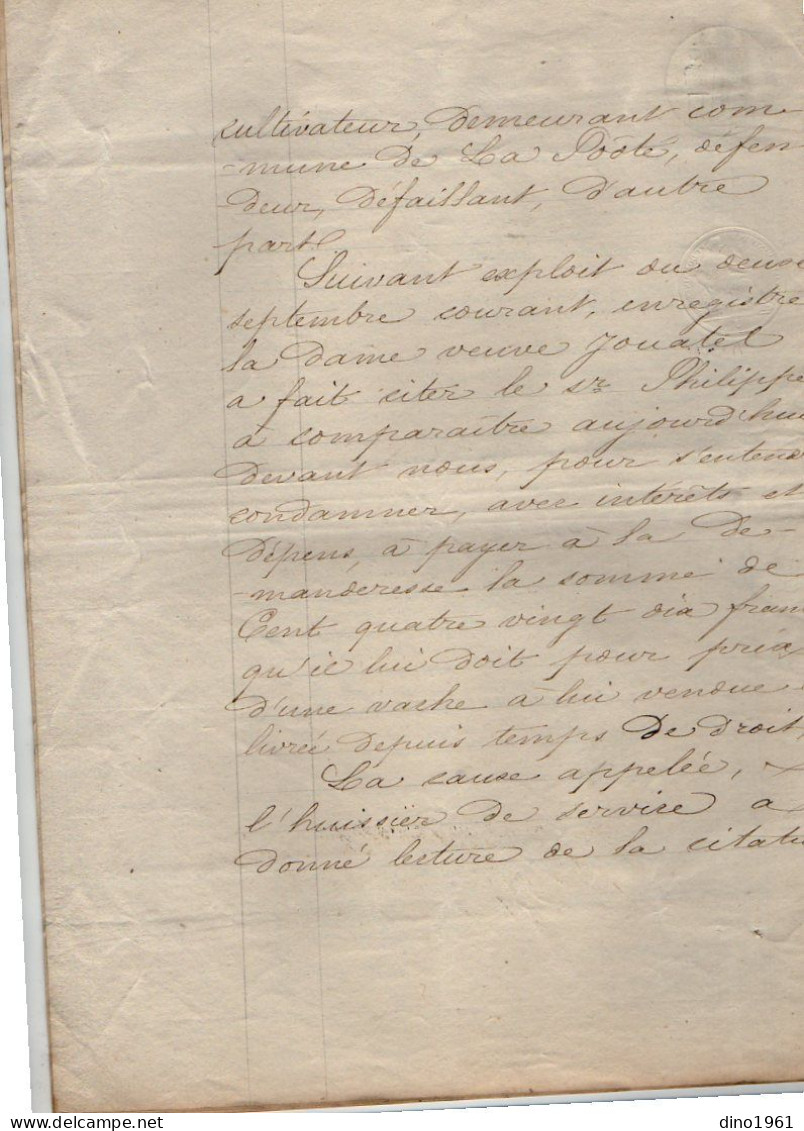 cultivateur, demeurant com
-mune de La Poôté, défen
deur, défaillant, d'autre
part
Suivant exploit du deux
septembre courant, enregistré
la dame veuve Jouatel
a fait citer le sr Philippe
à comparaître aujourd'hui
devant nous, pour s'entend
condamner, avec intérêts et
dépens, à payer à la de-
-manderesse la somme de
Cent quatre vingt dix fran
qu'il lui doit pour prix
d'une vache à lui vendue
livrée depuis temps de droit,
La cause appelée,
l'huissier de service a
donné lecture de la citati
dino1961